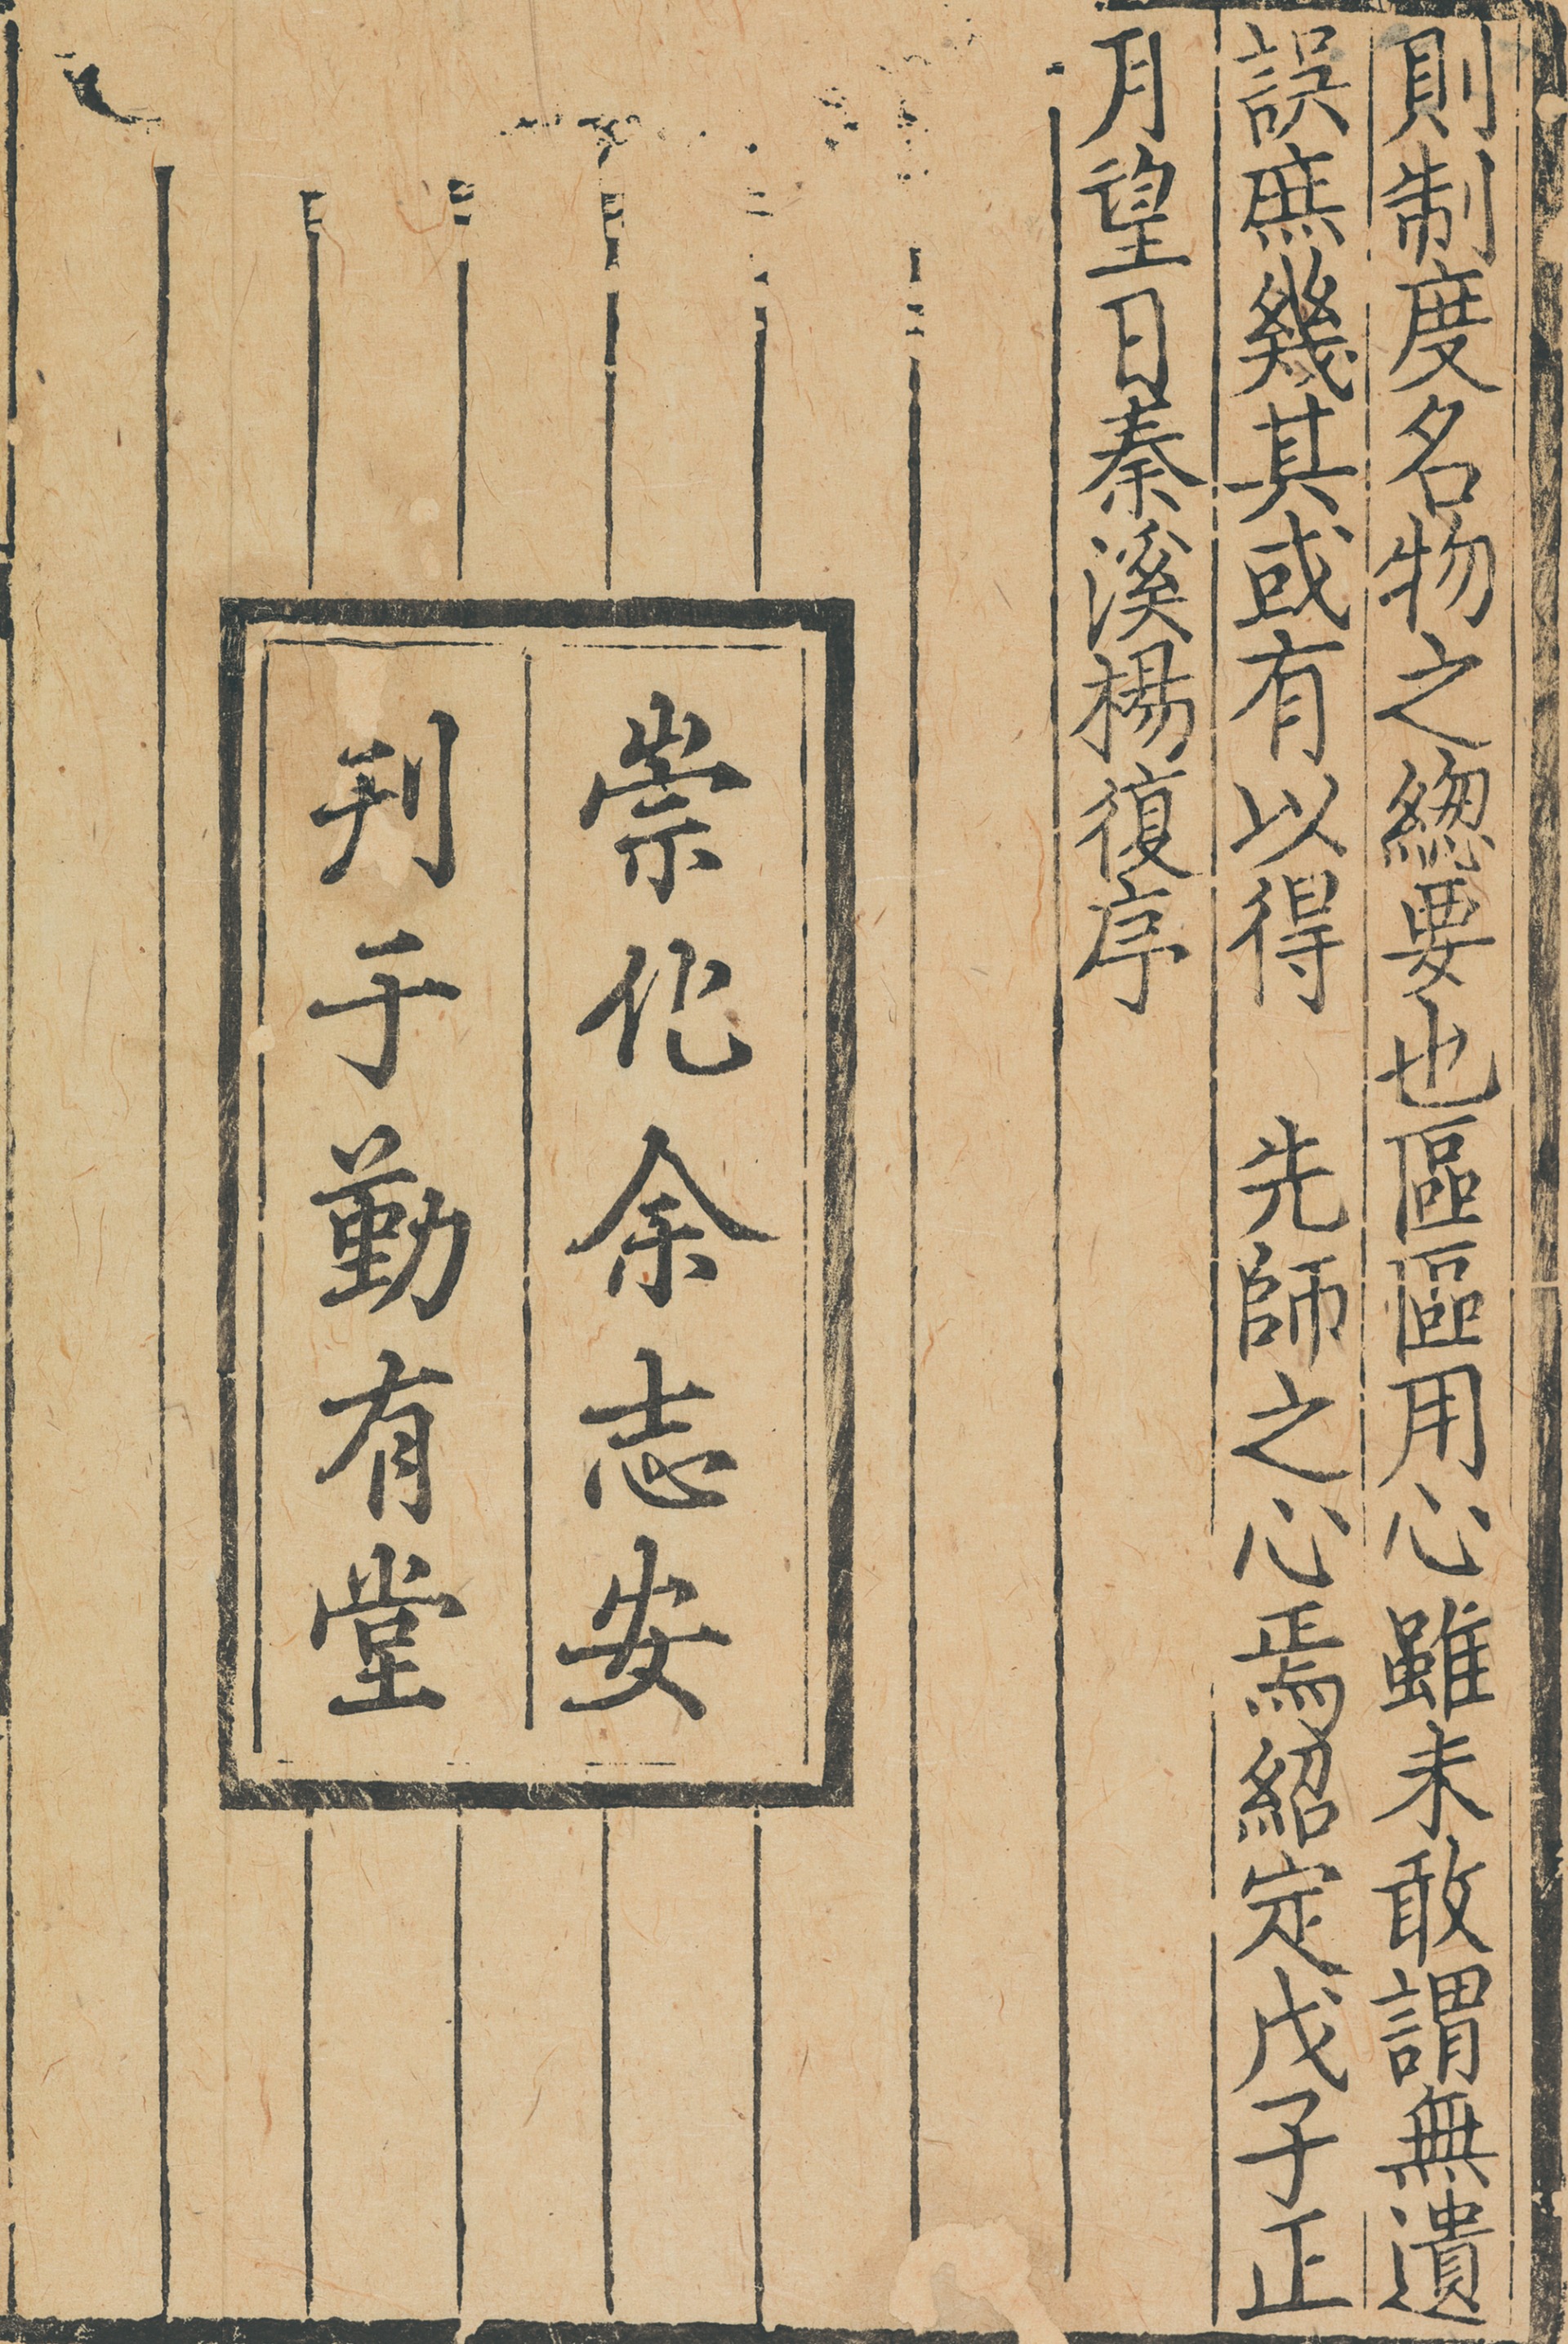 則制度名物之緫要也區區用心雖未敢謂無遺
誤庶幾其或有以得　先師之心焉紹定戊子正
月望日秦溪楊復序
崇化余志安
刋于勤有堂